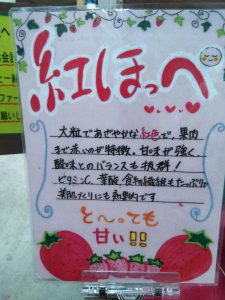 紅ほっぺ
大粒であざやかな紅色で、果肉
まで赤いのが特徴。甘味が強く、
酸味とのバランスも抜群!
ビタミンC、葉酸、食物繊維もたっぷりで
美肌づくりにも効果的です
と〜っても
甘い!!